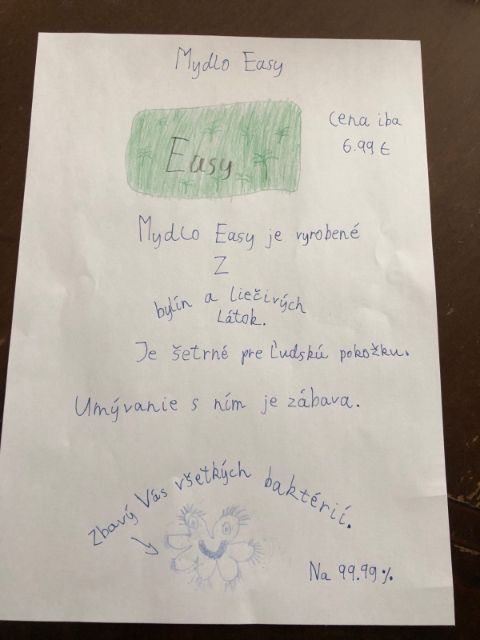 Mydlo Easy
Easy
Cena iba
6.99 €
Mydlo Easy je vyrobené
Z
bylín a liečivých
Látok.
Je šetrné pre Ľudskú pokožku.
Umývanie s ním je zábava.
Zbavý Vás všetkých baktérií.
Na 99.99%